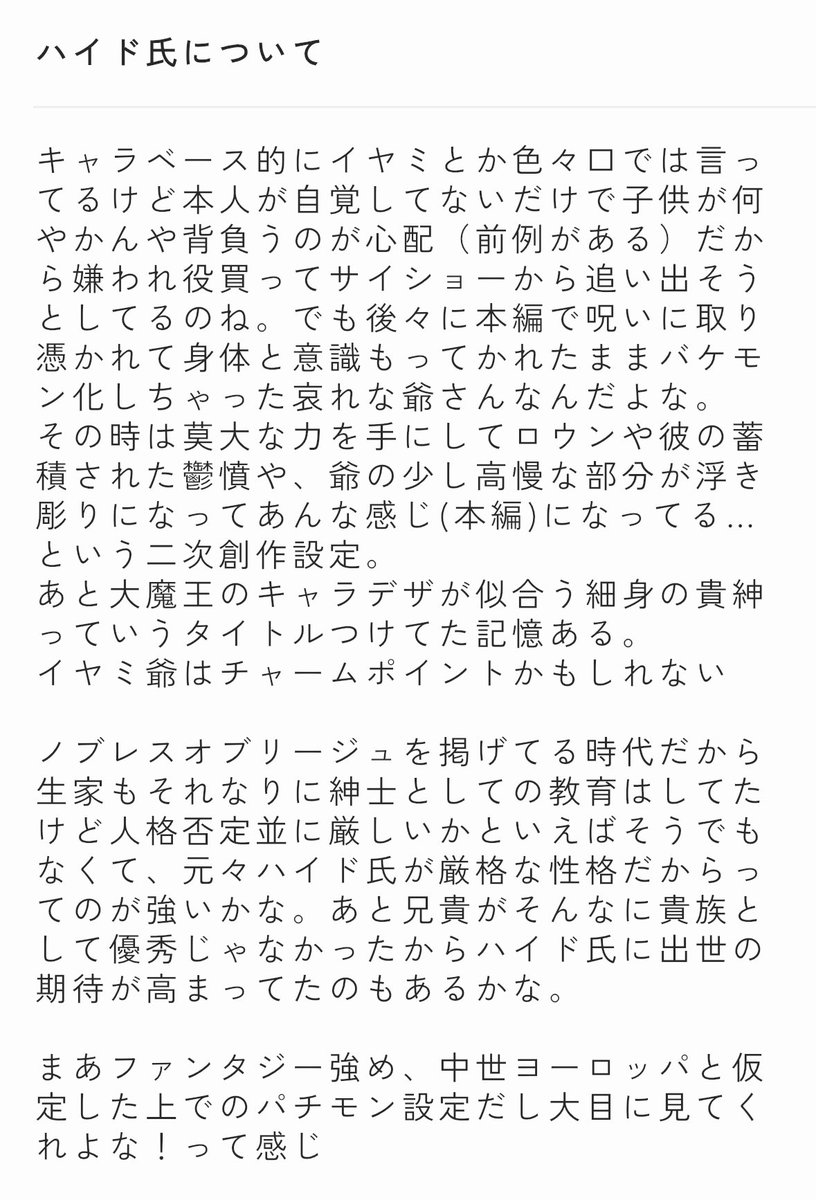 ハイド氏について
キャラベース的にイヤミとか色々口では言っ
てるけど本人が自覚してないだけで子供が何
やかんや背負うのが心配（前例がある）だか
ら嫌われ役買ってサイショーから追い出そう
としてるのね。でも後々に本編で呪いに取り
憑かれて身体と意識もってかれたままバケモ
ン化しちゃった哀れな爺さんなんだよな。
その時は莫大な力を手にしてロウンや彼の蓄
積された鬱憤や、爺の少し高慢な部分が浮き
彫りになってあんな感じ(本編)になってる…
という二次創作設定。
あと大魔王のキャラデザが似合う細身の貴紳
っていうタイトルつけてた記憶ある。
イヤミ爺はチャームポイントかもしれない
ノブレスオブリージュを掲げてる時代だから
生家もそれなりに紳士としての教育はしてた
けど人格否定並に厳しいかといえばそうでも
なくて、元々ハイド氏が厳格な性格だからっ
てのが強いかな。あと兄貴がそんなに貴族と
して優秀じゃなかったからハイド氏に出世の
期待が高まってたのもあるかな。
まあファンタジー強め、中世ヨーロッパと仮
定した上でのパチモン設定だし大目に見てく
れよな！って感じ